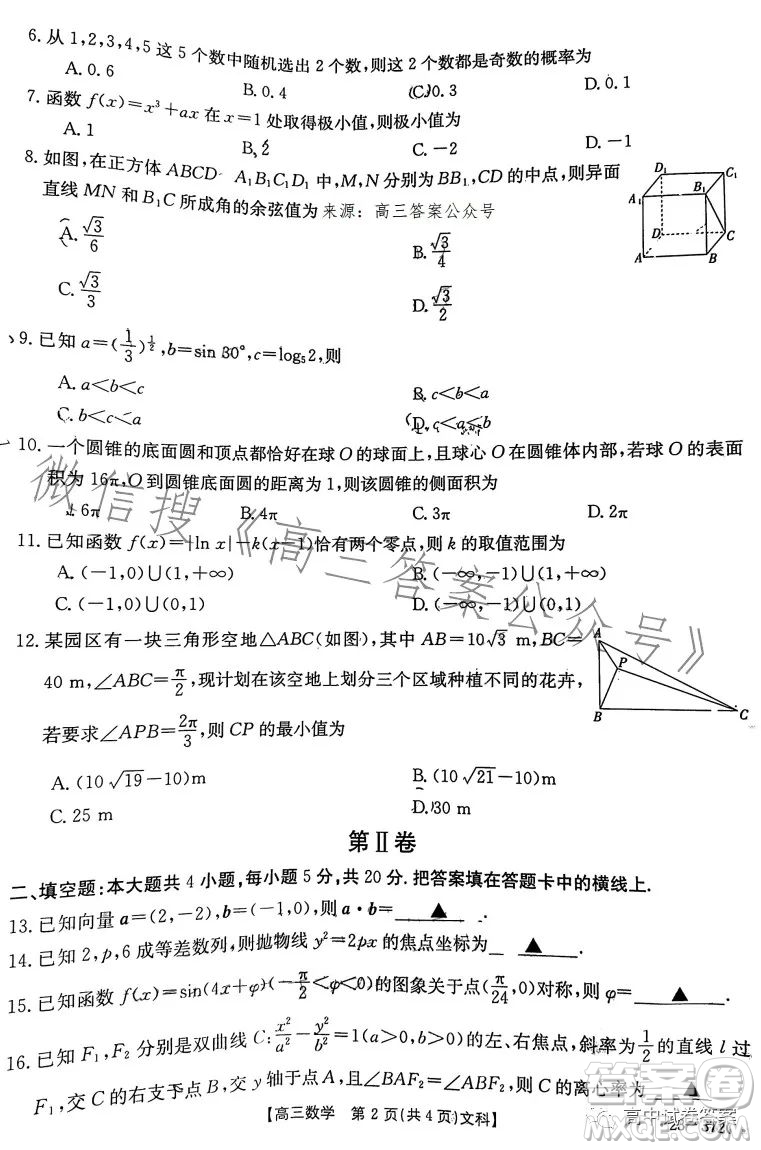 6. 从 1,2,3,4,5 这 5 个数中随机选出 2 个数,则这 2 个数都是奇数的概率为
A. 0.6 B. 0.4 C. 0.3 D. 0.1
7. 函数 f(x)=x³+ax 在 x=1 处取得极小值,则极小值为
A. 1 B. 2 C. −2 D. −1
8. 如图,在正方体 ABCD A₁B₁C₁D₁ 中,M,N 分别为 BB₁,CD 的中点,则异面
直线 MN 和 B₁C 所成角的余弦值为 来源：高三答案公众号
A. √3/6 B. √3/4
C. √3/3 D. √3/2
D₁ C₁ A₁ B₁ D C A B
9. 已知 a=(1/3)^(1/2),b=sin 30°,c=log₅2,则
A. a<b<c B. c<b<a
C. b<c<a D. c<a<b
10. 一个圆锥的底面圆和顶点都恰好在球 O 的球面上,且球心 O 在圆锥体内部,若球 O 的表面
积为 16π,O 到圆锥底面圆的距离为 1,则该圆锥的侧面积为
6π B. 4π C. 3π D. 2π
11. 已知函数 f(x)=|ln x|−k(x−1)恰有两个零点,则 k 的取值范围为
A. (−1,0)∪(1,+∞) B. (−∞,−1)∪(1,+∞)
C. (−1,0)∪(0,1) D. (−∞,−1)∪(0,1)
12. 某园区有一块三角形空地△ABC(如图),其中 AB=10√3 m,BC=
40 m,∠ABC=π/2,现计划在该空地上划分三个区域种植不同的花卉,
若要求∠APB=2π/3,则 CP 的最小值为
A P B C
A. (10√19−10)m B. (10√21−10)m
C. 25 m D. 30 m
第Ⅱ卷
二、填空题:本大题共 4 小题,每小题 5 分,共 20 分.把答案填在答题卡中的横线上.
13. 已知向量 a=(2,−2),b=(−1,0),则 a·b= ▲
14. 已知 2,p,6 成等差数列,则抛物线 y²=2px 的焦点坐标为 ▲
15. 已知函数 f(x)=sin(4x+φ)(−π/2<φ<0)的图象关于点(π/24,0)对称,则 φ= ▲
16. 已知 F₁,F₂ 分别是双曲线 C:x²/a²−y²/b²=1(a>0,b>0)的左、右焦点,斜率为1/2的直线 l 过
F₁,交 C 的右支于点 B,交 y 轴于点 A,且∠BAF₂=∠BF₂A,则 C 的离心率为 ▲
【高三数学 第 2 页(共 4 页)文科】
微信搜《高三答案公众号》
答案卷
高中试卷答案